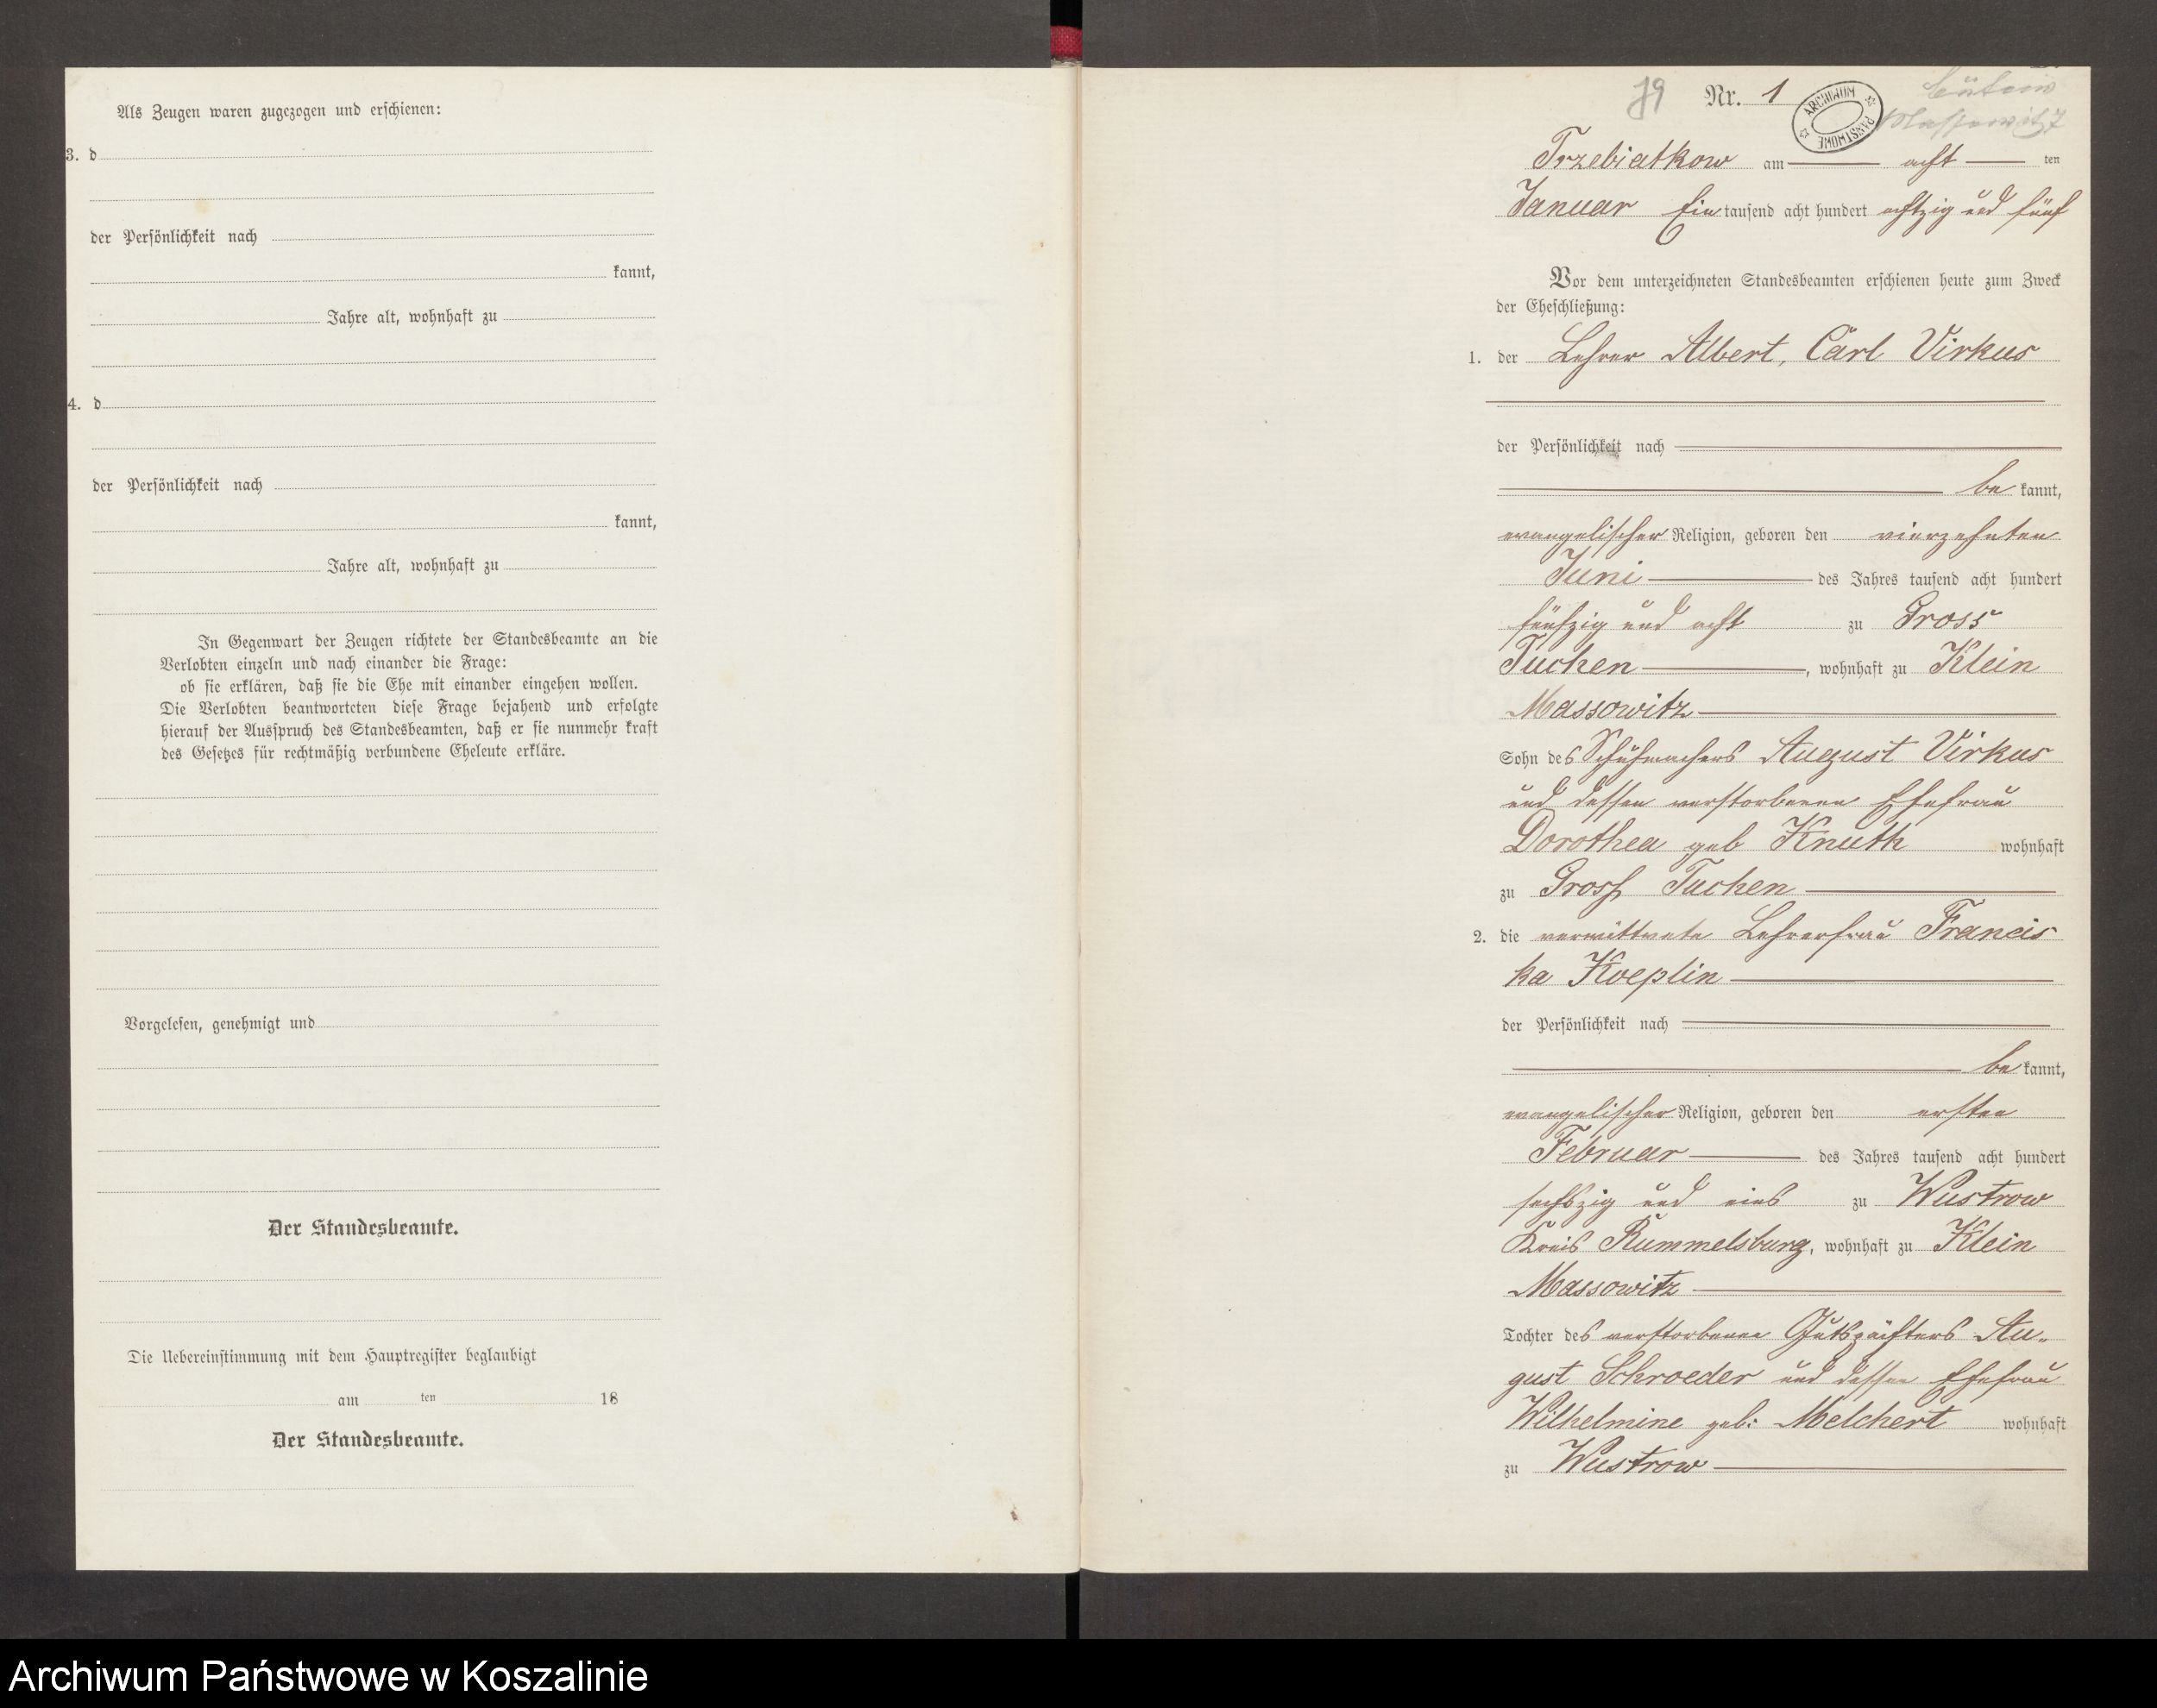 Als Zeugen waren zugezogen und erschienen:
3. d
der Persönlichkeit nach
kannt,
Jahre alt, wohnhaft zu
4. d
der Persönlichkeit nach
kannt,
Jahre alt, wohnhaft zu
In Gegenwart der Zeugen richtete der Standesbeamte an die
Verlobten einzeln und nach einander die Frage:
ob sie erklären, daß sie die Ehe mit einander eingehen wollen.
Die Verlobten beantworteten diese Frage bejahend und erfolgte
hierauf der Ausspruch des Standesbeamten, daß er sie nunmehr kraft
des Gesetzes für rechtmäßig verbundene Eheleute erkläre.
Vorgelesen, genehmigt und
Der Standesbeamte.
Die Uebereinstimmung mit dem Hauptregister beglaubigt
am ten 18
Der Standesbeamte.
Nr. 1
ARCHIWUM PAŃSTWOWE
Trzebiatkow am acht ten
Januar Ein tausend acht hundert achtzig und fünf
Vor dem unterzeichneten Standesbeamten erschienen heute zum Zweck
der Eheschließung:
1. der Lehrer Albert, Carl Virkus
der Persönlichkeit nach
be kannt,
evangelischer Religion, geboren den vierzehnten
Juni des Jahres tausend acht hundert
fünfzig und acht zu Gross
Tuchen, wohnhaft zu Klein
Massowitz
Sohn des Schuhmachers August Virkus
und dessen verstorbenen Ehefrau
Dorothea geb Knuth wohnhaft
zu Groß Tuchen
2. die verwittwete Lehrerfrau Francis
ka Koeplin
der Persönlichkeit nach
be kannt,
evangelischer Religion, geboren den ersten
Februar des Jahres tausend acht hundert
sechszig und eins zu Wustrow
Kreis Rummelsburg, wohnhaft zu Klein
Massowitz
Tochter des verstorbenen Gutspächters Au-
gust Schroeder und dessen Ehefrau
Wilhelmine geb: Melchert wohnhaft
zu Wustrow
Archiwum Państwowe w Koszalinie